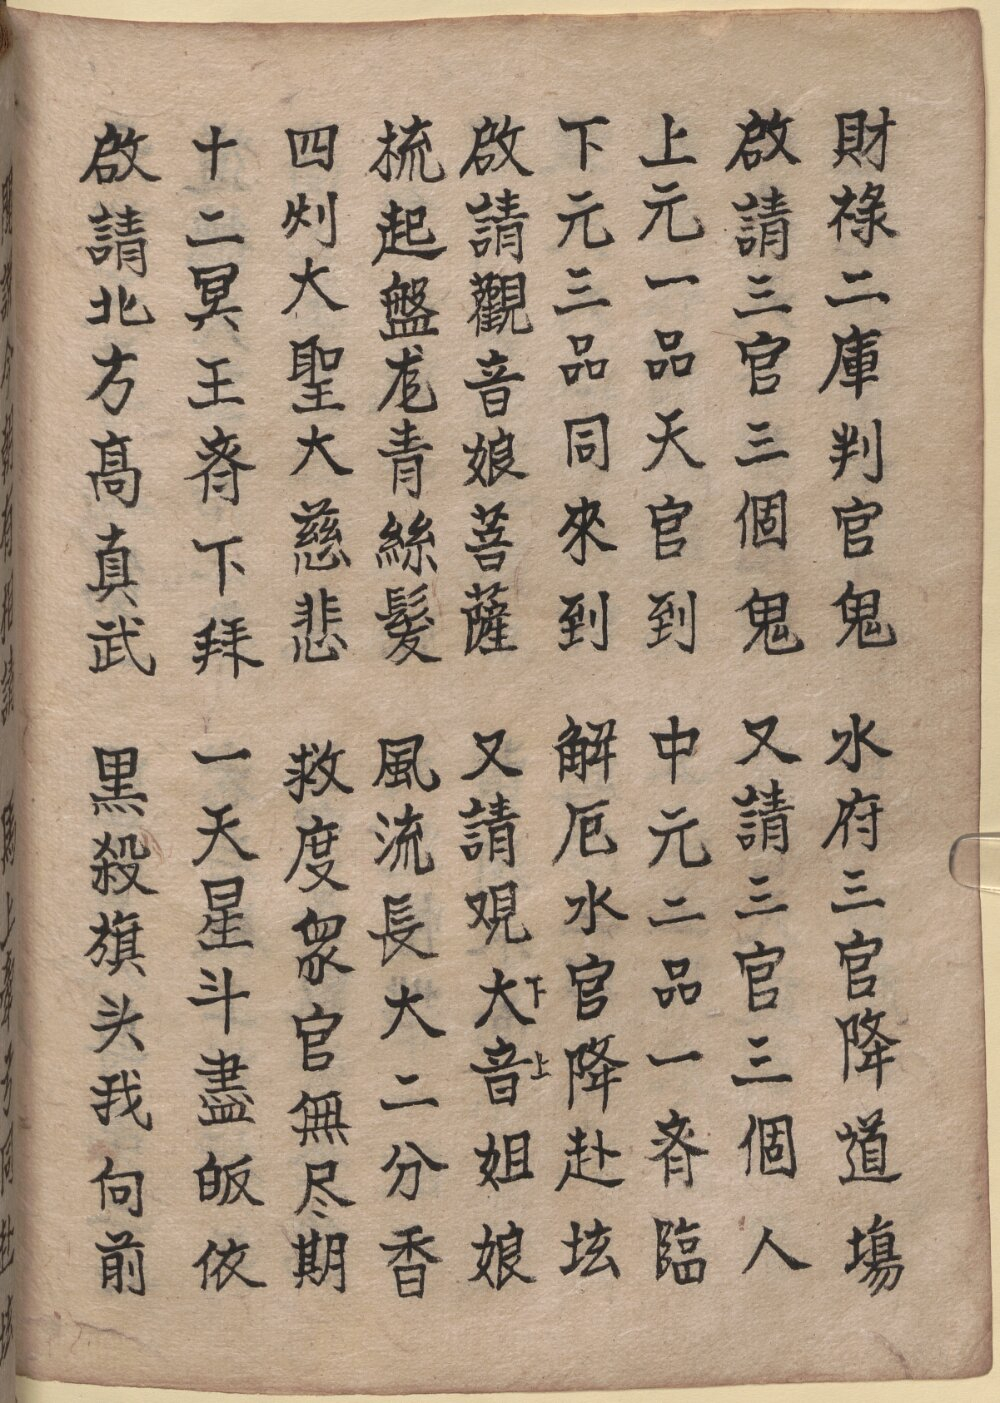 財祿二庫判官鬼 水府三官降道塲
啟請三官三個鬼 又請三官三個人
上元一品天官到 中元二品一齊臨
下元三品同來到 解厄水官降赴坛
啟請觀音娘菩薩 又請观大下音上姐娘
梳起盤龙青絲髮 風流長大二分香
四刈大聖大慈悲 救度衆官無尽期
十二冥王齊下拜 一天星斗盡皈依
啟請北方高真武 黑殺旗头我向前